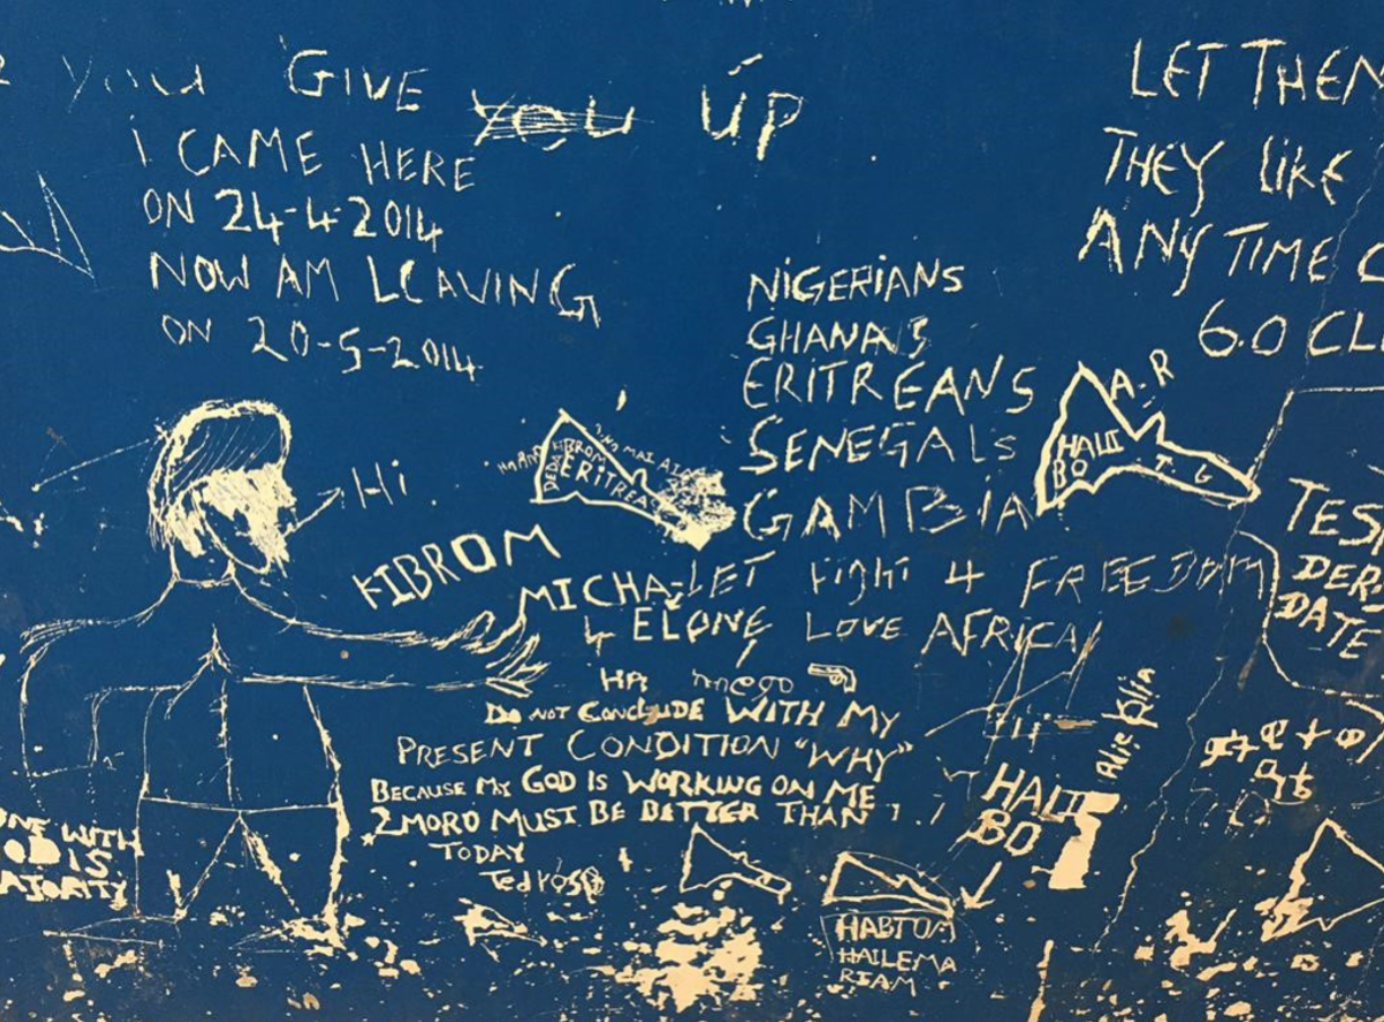 you GIVE YOU UP
I CAME HERE
ON 24-4-2014
NOW AM LEAVING
ON 20-5-2014
LET THEM
THEY like
ANY TIME
6.0 CL
NIGERIANS
GHANA'S
ERITREANS
SENEGALS
GAMBIA
A-R
HALI
BO
T G
Hi
KIBROM
ERITREA
KIBROM
MICHA-
ELONE
LET Fight 4 FREEDOM
LOVE AFRICA
HA
DO NOT CONCLUDE WITH MY
PRESENT CONDITION "WHY"
BECAUSE MY GOD IS WORKING ON ME
2MORO MUST BE BETTER THAN
TODAY
TedrosP
ONE WITH
OD IS
AJORITY
HALI
BO
HABTOM
HAILEMA
RIAM
TES
DER
DATE